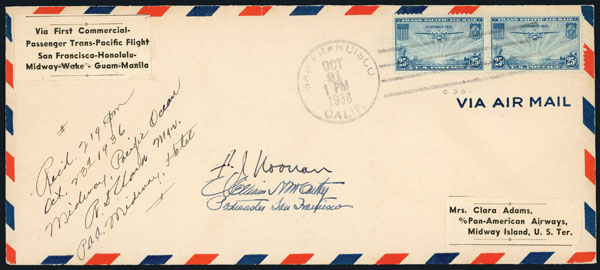 Via First Commercial-
Passenger Trans-Pacific Flight
San Francisco-Honolulu-
Midway-Wake - Guam-Manila
TRANS-PACIFIC AIR MAIL
NOVEMBER 1935
25¢ 25¢
U.S. POSTAGE
TRANS-PACIFIC AIR MAIL
NOVEMBER 1935
25¢ 25¢
U.S. POSTAGE
SAN FRANCISCO
OCT
21
1 PM
1936
CALIF.
VIA AIR MAIL
#
Recd. 2:19 pm
Oct. 23rd 1936
Midway, Pacific Ocean
Mgr.
Midway, Hotel
F. J. Noonan
William McCarthy
Postmaster San Francisco
Mrs. Clara Adams,
%Pan-American Airways,
Midway Island, U. S. Ter.